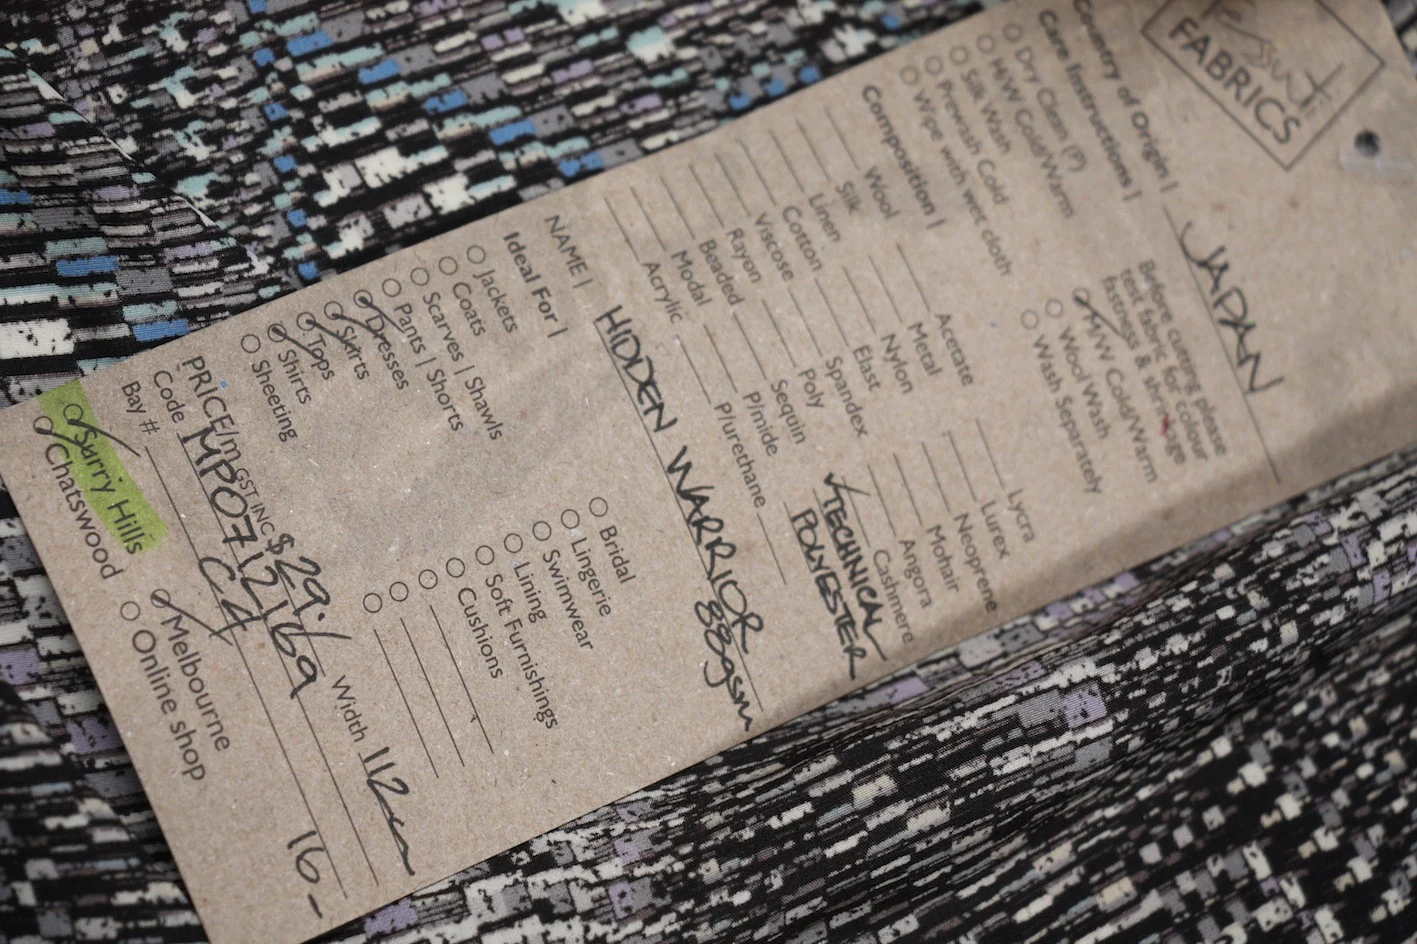 Tessuti
FABRICS
Country of Origin | JAPAN
Care Instructions |
Before cutting please
test fabric for colour
fastness & shrinkage
Dry Clean (P)
H/W Cold/Warm
Silk Wash
Prewash Cold
Wipe with wet cloth
H/W Cold/Warm
Wool Wash
Wash Separately
Composition |
Wool
Silk
Linen
Cotton
Viscose
Rayon
Beaded
Modal
Acrylic
Acetate
Metal
Nylon
Elast
Spandex
Poly
Sequin
P/nide
P/urethane
Lycra
Lurex
Neoprene
Mohair
Angora
Cashmere
TECHNICAL
POLYESTER
NAME | HIDDEN WARRIOR
88gsm
Ideal For |
Jackets
Coats
Scarves | Shawls
Pants | Shorts
Dresses
Skirts
Tops
Shirts
Sheeting
Bridal
Lingerie
Swimwear
Lining
Soft Furnishings
Cushions
PRICE/m GST INC $29.- Width 112cm
Code MP0712169
Bay # C4 16-
Surry Hills
Chatswood
Melbourne
Online shop